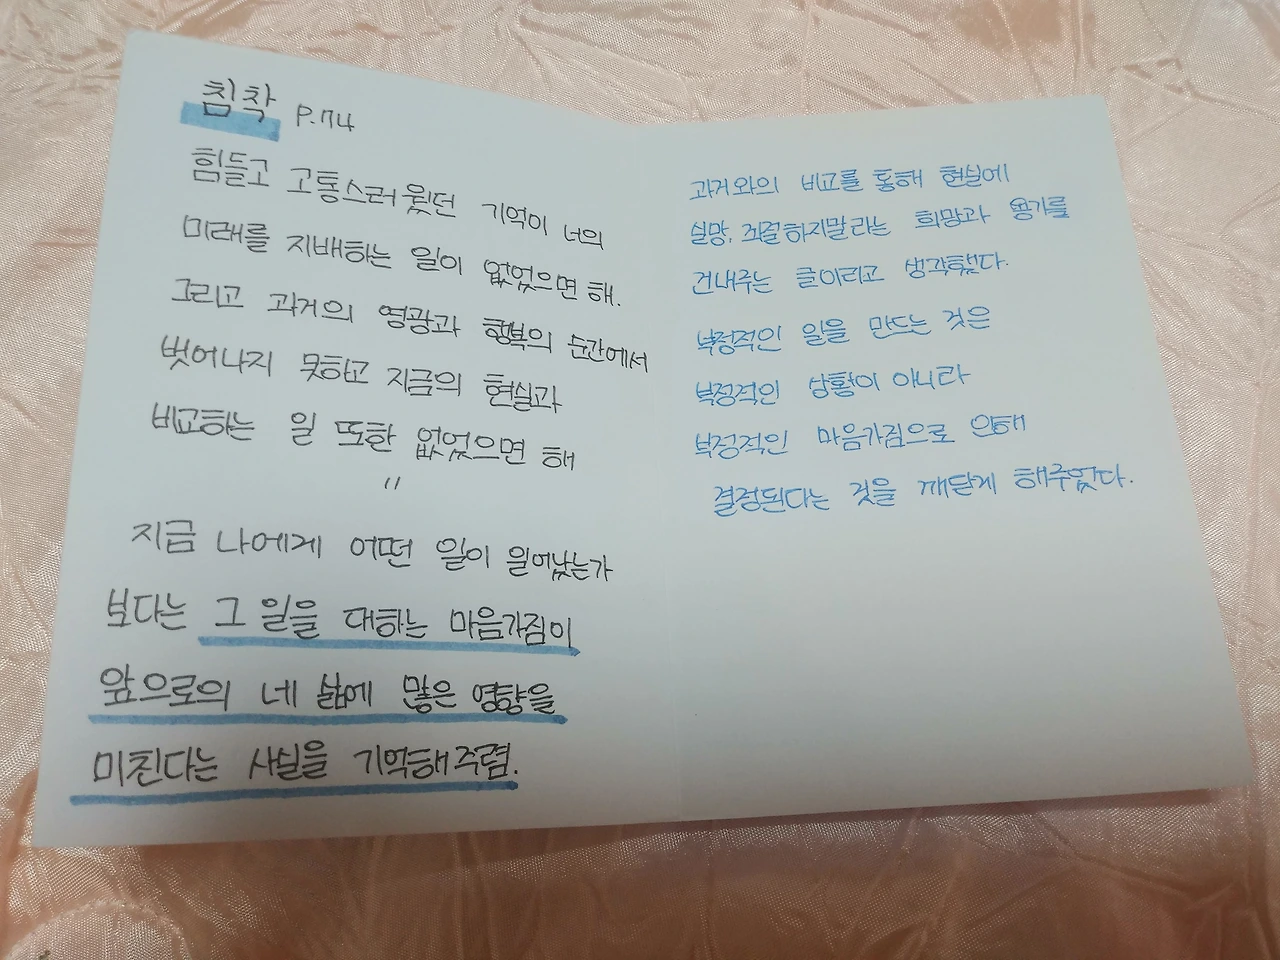 침착 P.74
힘들고 고통스러웠던 기억이 너의
미래를 지배하는 일이 없었으면 해.
그리고 과거의 영광과 행복의 순간에서
벗어나지 못하고 지금의 현실과
비교하는 일 또한 없었으면 해
"
지금 나에게 어떤 일이 일어났는가
보다는 그 일을 대하는 마음가짐이
앞으로의 네 삶에 많은 영향을
미친다는 사실을 기억해주렴.
과거와의 비교를 통해 현실에
실망, 좌절하지말라는 희망과 용기를
건내주는 글이라고 생각했다.
부정적인 일을 만드는 것은
부정적인 상황이 아니라
부정적인 마음가짐으로 인해
결정된다는 것을 깨닫게 해주었다.